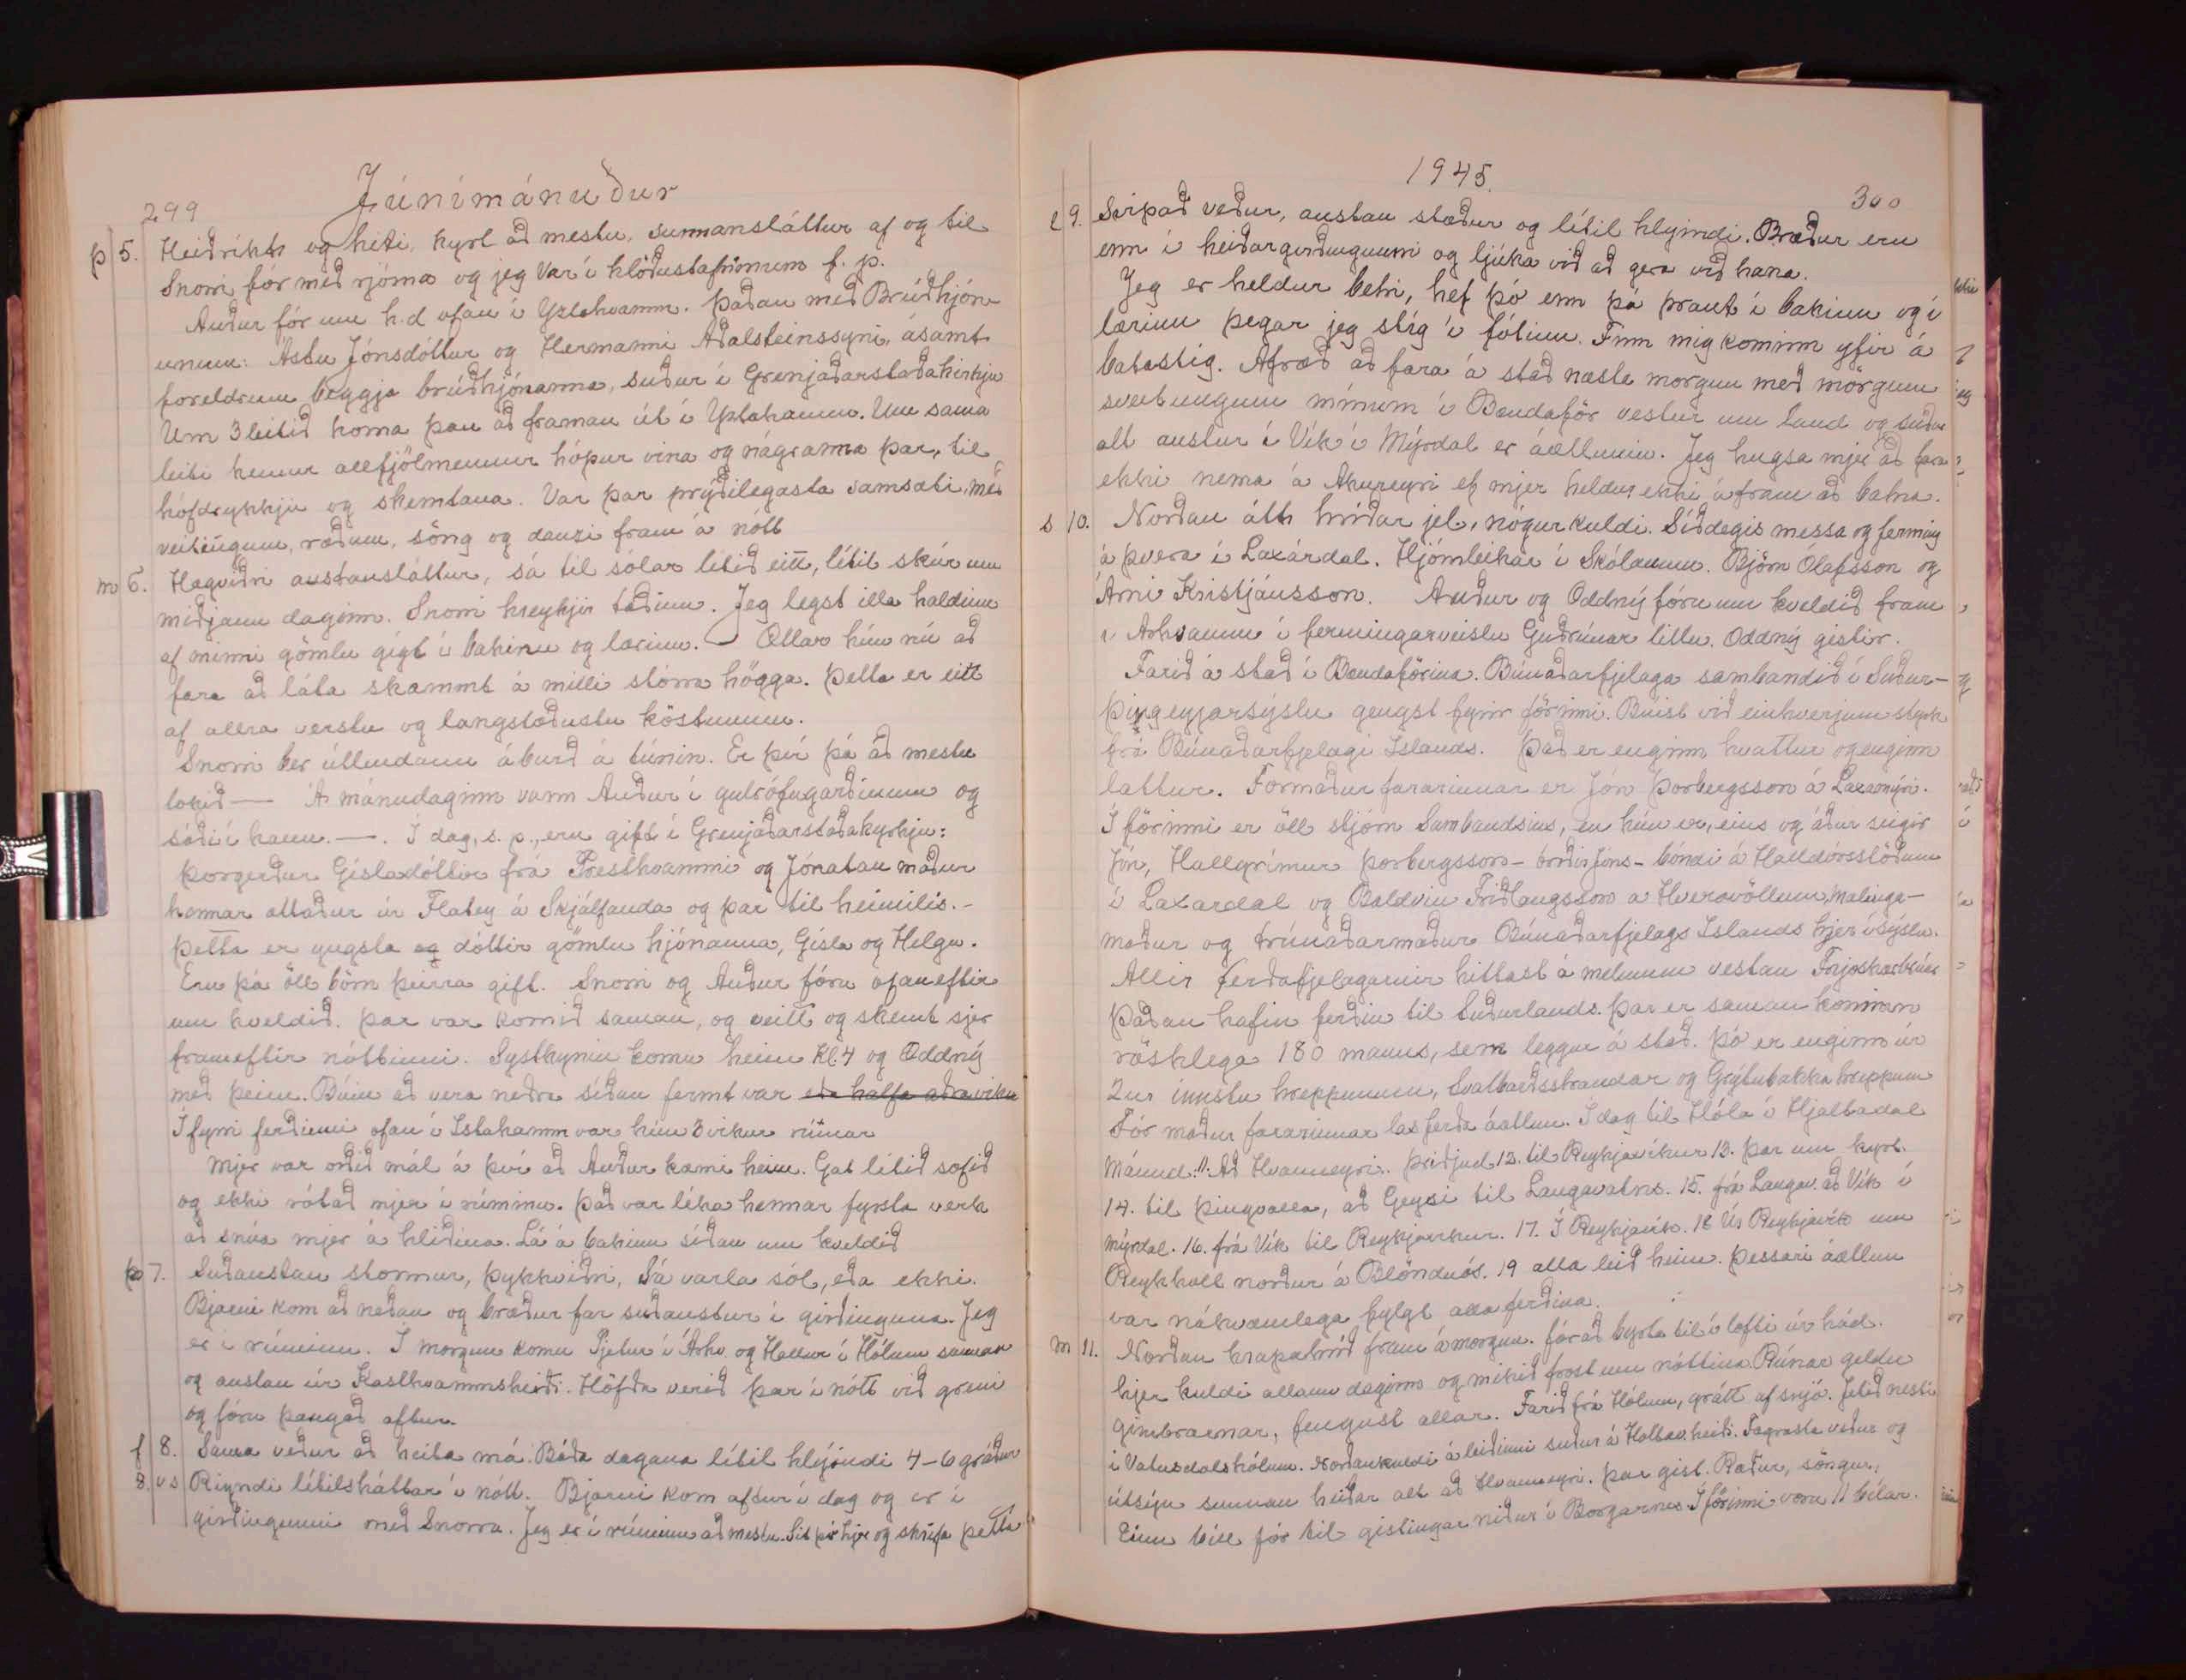 299 Júnímánuður
þ 5. Heiðríkt og hiti, kyrt að mestu, sunnansláttur af og til
Snorri fór með rjóma og jeg var í klöðustafninum f. p.
Auður fór um h.d ofan í Yztahvamm. Þaðan með Brúðhjón-
unum: Ástu Jónsdóttur og Hermanni Aðalsteinssyni, ásamt
foreldrum beggja brúðhjónanna, suður í Grenjaðarstaðakirkju
Um 3leitið koma þau að framan út í Yztahamm. Um sama
leiti kemur allfjölmennur hópur vina og nágranna þar, til
hófdrykkju og skemtana. Var þar prýðilegasta samsæti, með
veitingum, ræðum, söng og dansi fram á nótt
m 6. Hægviðri austansláttur, sá til sólar lítið eitt, lítil skúr um
miðjann daginn. Snorri hreykjir taðinu. Jeg legst illa haldinn
af minni gömlu gigt í bakinu og lærinu. — Ætlar hún nú að
fara að láta skammt á milli stórra högga. Þetta er eitt
af allra verstu og langstæðustu köstunum.
Snorri ber útlendann áburð á túnin. Er því þá að mestu
lokið — Á mánudaginn vann Auður í gulrófugarðinum og
sáði í hann. —. Í dag, s. p., eru gift í Grenjaðarstaðakyrkju:
Þorgerður Gísladóttir frá Presthvammi og Jónatan maður
hennar ættaður úr Flatey á Skjálfanda og þar til heimilis.-
Þetta er yngsta og dóttir gömlu hjónanna, Gísla og Helgu.
Eru þá öll börn þeirra gift. Snorri og Auður fóru ofaneftir
um kveldið. Þar var komið saman, og veitt og skemt sjer
frameftir nóttinni. Systkynin komu heim Kl. 4 og Oddný
með þeim. Búin að vera neðra síðan fermt var eða halfa aðra viku
Í fyrri ferðinni ofan í Istahamm var hún 3 vikur rúmar
Mjer var orðið mál á því að Auður kæmi heim. Gat lítið sofið
og ekki rótað mjer í rúminu. Það var líka hennar fyrsta verk
að snúa mjer á hliðina. Lá á bakinu síðan um kveldið
þ 7. Suðaustan stormur, þykkviðri, Sá varla sól, eða ekki.
Bjarni kom að neðan og bræður far suðaustur í girðinguna. Jeg
er í rúminu. Í morgun komu Pjetur í Árhv. og Hallur í Hólum saman
og austan úr Kasthvammsheiði. Höfðu verið þar í nótt við greni
og fóru þangað aftur.
f 8. Sama veður að heita má. Báða dagana lítil hlýjindi 4-6 gráður
8. vs Rigndi lítilsháttar í nótt. Bjarni kom aftur í dag og er í
girðingunni með Snorra. Jeg er í rúminu að mestu. Sit þó hjer og skrifa þetta
1945. 300
l 9. Svipað veður, austan stæður og lítil hlyindi. Bræður eru
enn í heiðargirðingunni og ljúka við að gera við hana.
Jeg er heldur betri, hef þó enn þá þraut í bakinu og í
lærinu þegar jeg stíg í fótinn. Finn mig kominn yfir á
batastig. Afráð að fara á stað næsta morgun með mörgum
sveitungum mínum í Bændaför vestur um land og suður
alt austur í Vík í Mýrdal er áætlunin. Jeg hugsa mjer að fara
ekki nema á Akureyri ef mjer heldur ekki áfram að batna.
s 10. Norðan átt hríðar jel, nógur kuldi. Síðdegis messa og ferming
á Þverá í Laxárdal. Hljómleikar í Skólanum. Björn Ólafsson og
Árni Kristjánsson. Auður og Oddný fóru um kveldið fram
í Árhvamm í fermingarveislu Guðrúnar litlu. Oddný gistir.
Farið á stað í Bændaförina. Búnaðarfjelaga sambandið í Suður-
þingeyjarsýslu gengst fyrir förinni. Búist við einhverjum styrk
frá Búnaðarfjelagi Íslands. Það er enginn hvattur og enginn
lattur. Formaður fararinnar er Jón Þorbergsson á Laxamýri.
Í förinni er öll stjórn Sambandsins, en hún er, eins og áður segir
Jón, Hallgrímur Þorbergsson - bróðir Jóns - bóndi á Halldórsstöðum
í Laxardal og Baldvin Friðlaugsson á Hveravöllum, mælinga-
maður og trúnaðarmaður Búnaðarfjelags Islands hjer í sýslu.
Allir ferðafjelagarnir hittast á melunum vestan Fnjóskarbrúar
Þaðan hafin ferðin til Suðurlands. Þar er saman kominn
rösklega 180 manns, sem leggur á stað. Þó er enginn úr
2ur innstu hreppunum, Svalbarðsstrandar og Grýtubakka hreppum
Fór maður fararinnar las ferða áætlun. Í dag til Hóla í Hjaltadal
Mánud. 11. Að Hvanneyri. Þriðjud. 12. til Reykjavíkur 13. Þar um kyrt.
14. til Þingvalla, að Geysi til Laugavatns. 15. frá Laugav. að Vík í
Mýrdal. 16. frá Vík til Reykjavíkur. 17. Í Reykjavík. 18 Úr Reykjavík um
Reykholt norður á Blönduós. 19 alla leið heim. Þessari áætlun
var nákvæmlega fylgt alla ferðina.
m 11. Norðan krapahríð fram á morgun. fór að byrta til í lofti úr hád.
hjer kuldi allann daginn og mikið frost um nóttina. Rúnar geldu
gimbrarnar, fengust allar. Farið frá Hólum, grátt af snjó. Jetið nesti
í Vatnsdalshólum. Norðankuldi á leiðinni suður á Holtav.heiði. Fagrasta veður og
útsýn sunnan heiðar alt að Hvanneyri. Þar gist. Ræður, söngur,
Einn bíll fór til gistingar niður í Borgarnes. Í förinni voru 11 bílar.